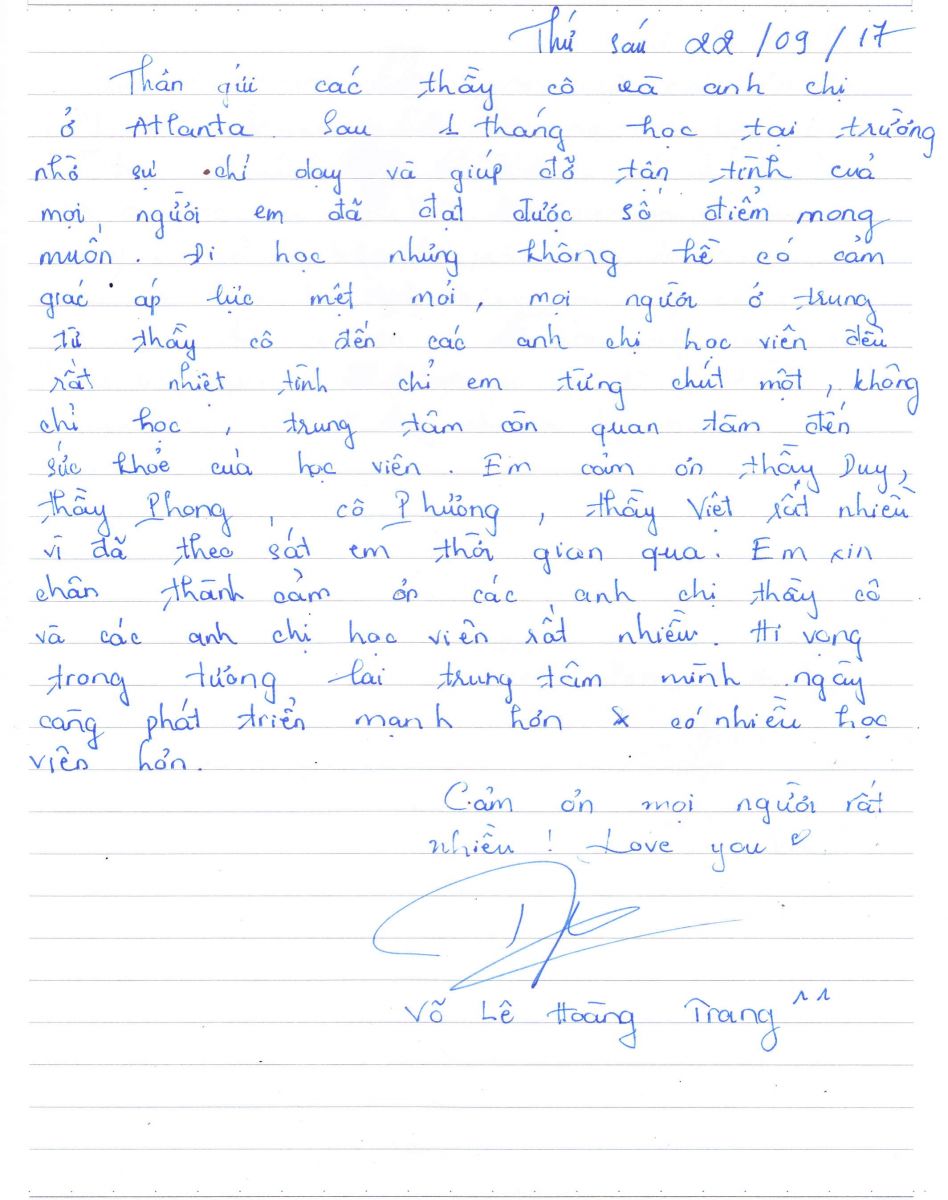 Thứ sáu 22/09/17
Thân gửi các thầy cô và anh chị
ở Atlanta. Sau 1 tháng học tại trường
nhờ sự chỉ dạy và giúp đỡ tận tình của
mọi người em đã đạt được số điểm mong
muốn. Đi học nhưng không hề có cảm
giác áp lực mệt mỏi, mọi người ở trung
từ thầy cô đến các anh chị học viên đều
rất nhiệt tình chỉ em từng chút một, không
chỉ học, trung tâm còn quan tâm đến
sức khoẻ của học viên. Em cảm ơn thầy Duy,
thầy Phong, cô Phương, thầy Việt rất nhiều
vì đã theo sát em thời gian qua. Em xin
chân thành cảm ơn các anh chị thầy cô
và các anh chị học viên rất nhiều. Hi vọng
trong tương lai trung tâm mình ngày
càng phát triển mạnh hơn & có nhiều học
viên hơn.
Cảm ơn mọi người rất
nhiều! Love you ♡
Võ Lê Hoàng Trang ^^